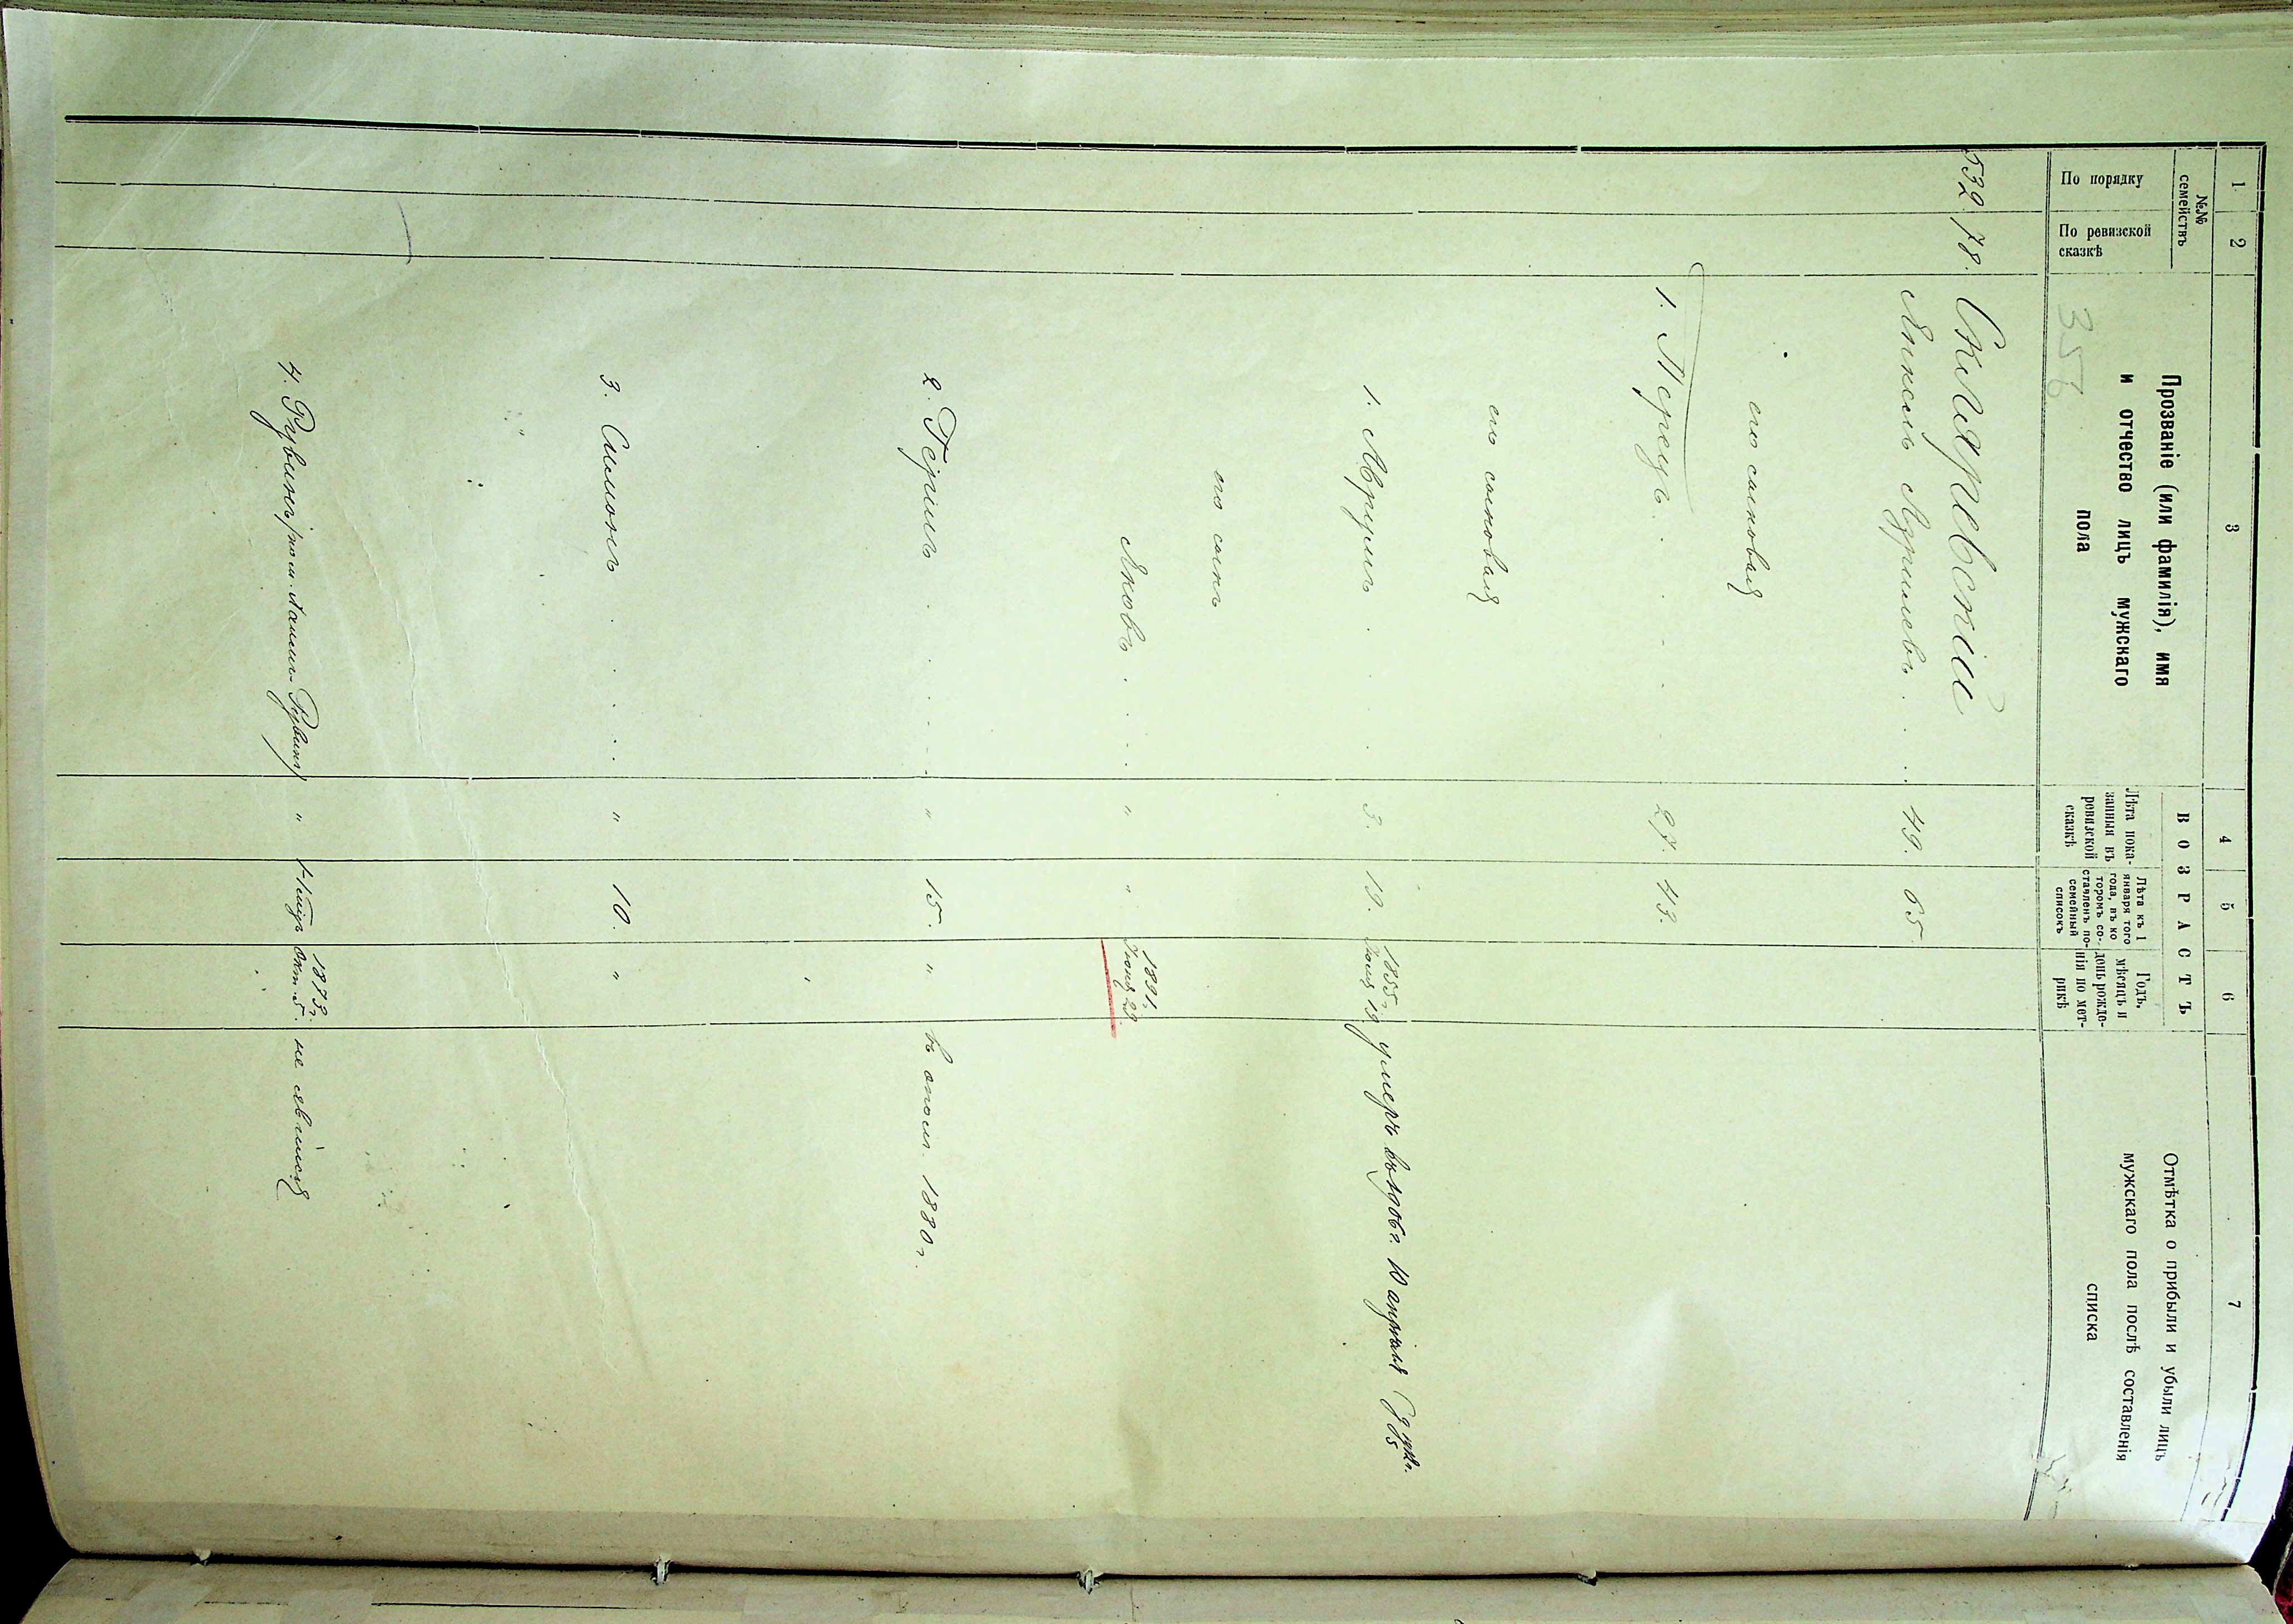 1 2 3 4 5 6 7
№№ семействъ
По порядку
По ревизской сказкѣ
Прозваніе (или фамилія), имя
и отчество лицъ мужскаго
пола
ВОЗРАСТЪ
Лѣта пока-
занныя въ
ревизской
сказкѣ
Лѣта къ 1
января того
года, въ ко
торомъ со-
ставленъ по-
семейный
списокъ
Годъ,
мѣсяцъ и
день рожде-
нія по мет-
рикѣ
Отмѣтка о прибыли и убыли лицъ
мужскаго пола послѣ составленія
списка
356
532. 78. Скляревскій
Янкель Азрилевъ 49. 65
его сыновья
1. Перецъ 27. 43.
его сыновья
1. Аврумъ 3. 19. 1855 г. 19 умеръ 10 апрѣля
его сынъ
Яковъ " " 1891 г. Іюня 29.
2. Гершъ " 15. " въ опол. 1880 г.
3. Симонъ " 10. "
4. Рувинъ " 1873 г. Окт. 5. не явился